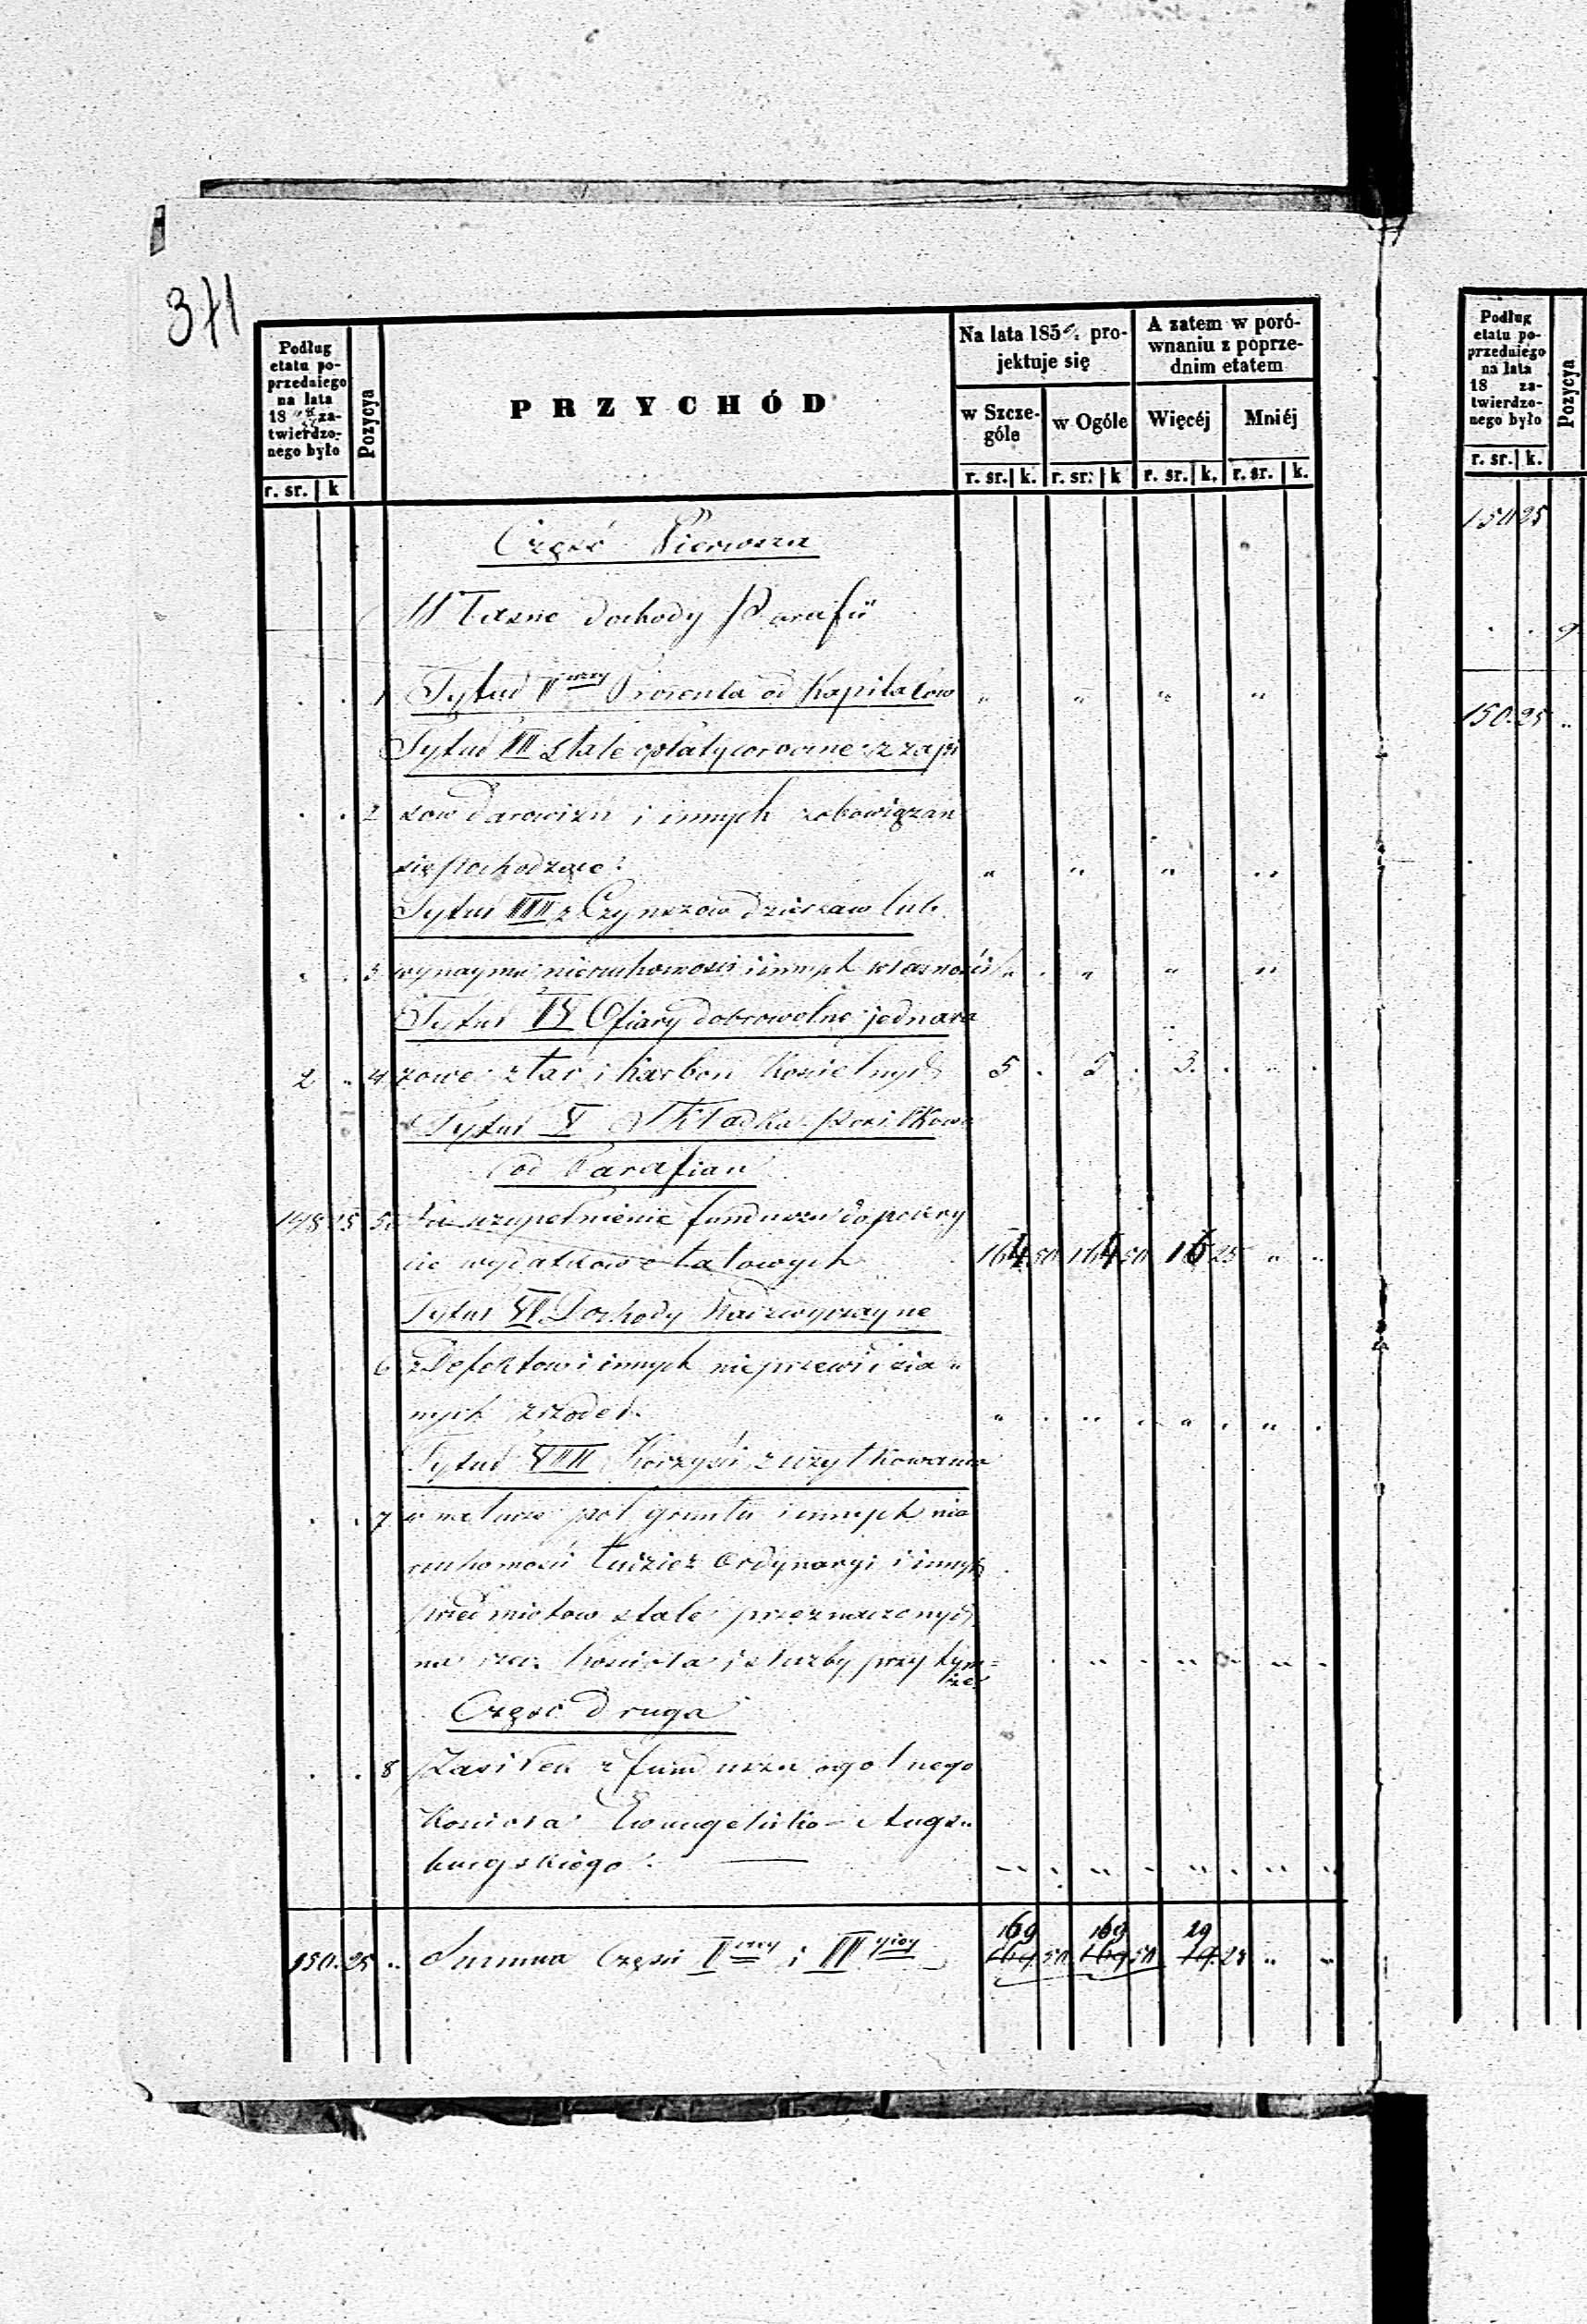 371
Podług etatu poprzedniego na lata 18 zatwierdzonego było
r. sr. k
Pozycya
PRZYCHÓD
Na lata 185 projektuje się
w Szczególe
r. sr. k.
w Ogóle
r. sr. k
A zatem w porównaniu z poprzednim etatem
Więcéj
r. sr. k.
Mniéj
r. sr. k.
Część Pierwsza
Własne dochody Parafii
1 Tytuł Iwszy Procenta od Kapitałow
Tytuł II Stałe opłaty coroczne z zapi
2 sow darowizn i innych zobowiązan
się pochodzące
Tytuł III z Czynszow dzierzaw lub
3 wynaymu nieruchomości i innych własności
Tytuł IV Ofiary dobrowolne jednara
2 4 zowe z tac i karbon Koscielnych 5 5 3
Tytuł V Składka Posiłkowa
od Parafian
148 25 5 na uzupełnienie funduszu do pokry
cie wydatkow etatowych 164 50 164 50 16 25
Tytuł VI Dochody Nadzwyczayne
6 z Defektow i innych nieprzewidzia
nych zrzodeł
Tytuł VII Korzyści z uzytkowania
7 w naturze pol gruntu i innych nie
ruchomości tudziez Ordynaryi i innych
przedmiotow stale przeznaczonych
na rzecz Kościoła i służby przy tym=
że
Część Druga
8 Zasiłek z funduszu ogolnego
Koscioła Ewangelicko-Augs
burgskiego
150 25 Summa Części Iwszey i IIgiey 169 50 169 50 19 25
Podług etatu poprzedniego na lata 18 zatwierdzonego było
r. sr. k.
Pozycya
150 25
9
150 25